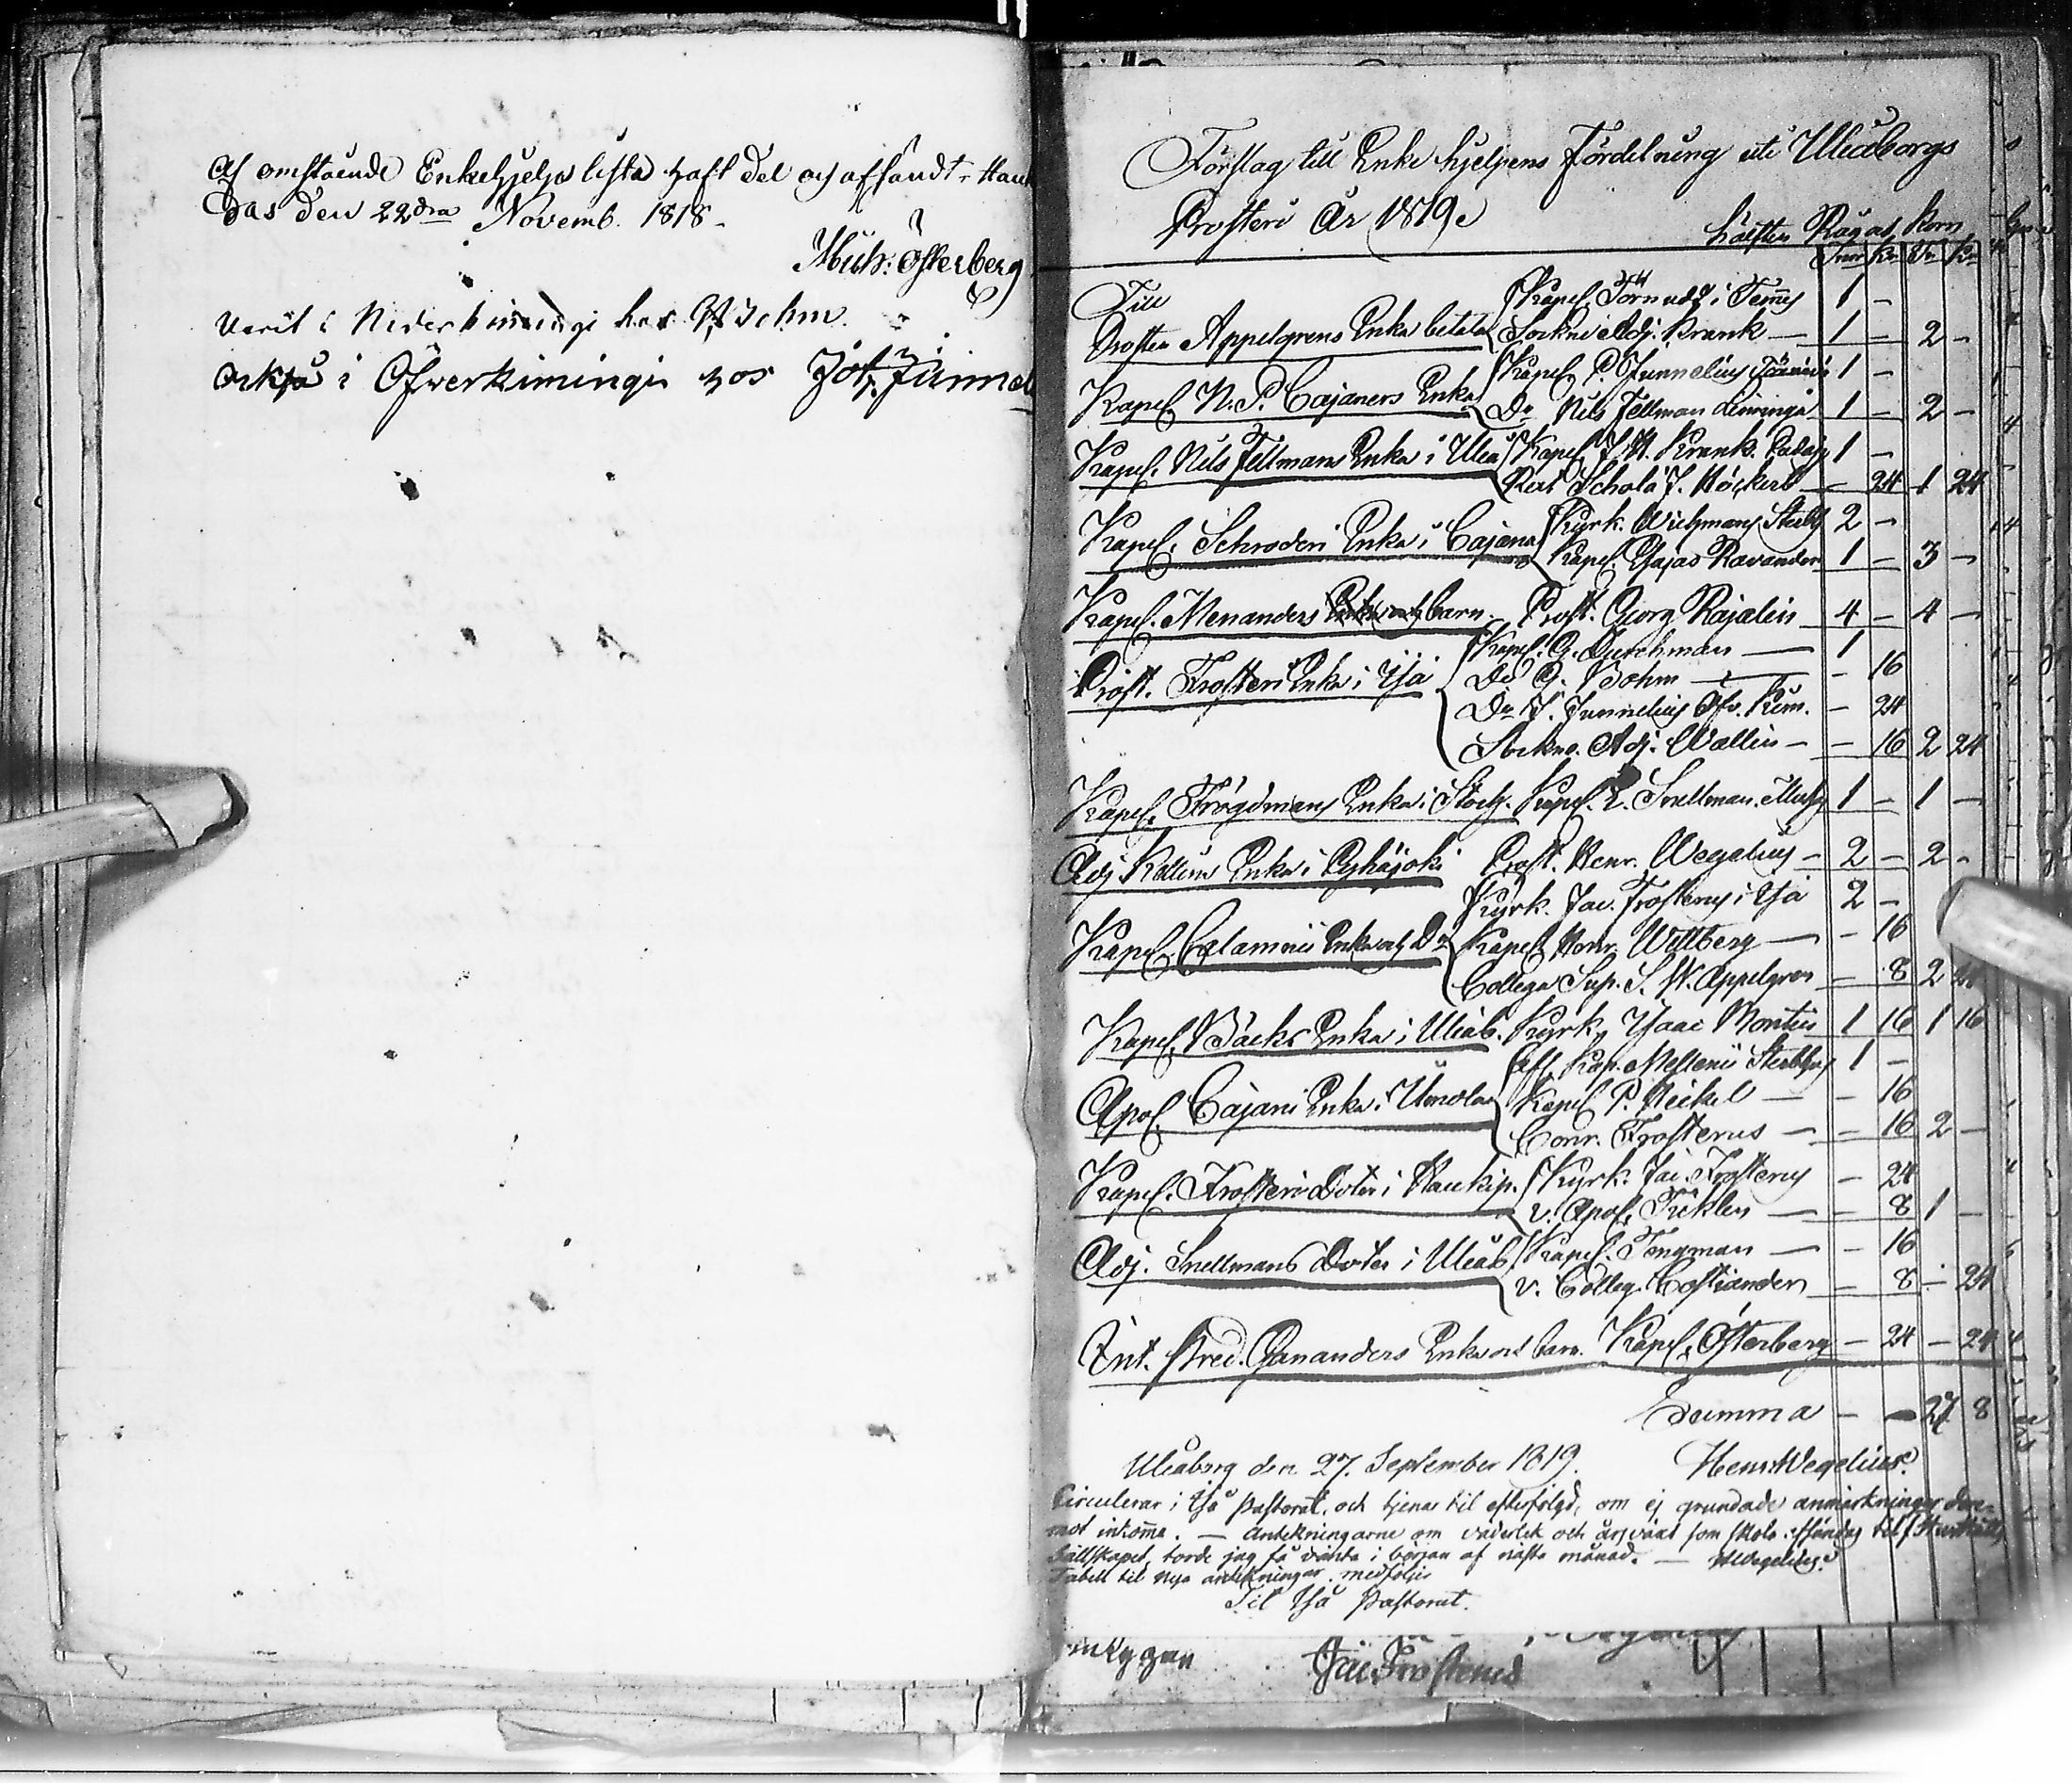 Af omstående Enkehjelps lista haft del och afsändt. Hau
das den 22dra Novemb. 1818.
Mich: Österberg
Varit i Nederkimingi hos Bohm.
Också i Öfverkimingi hos Joh. Junnel
Förslag till Enke hjelpens fördelning uti Uleåborgs
Prosteri År 1819.
hälften Råg och Korn
Tnor Kr Tn Kr
Till
Prosten Appelgrens Enka betala Kapel. Törnudd i Temmes 1 -
Sockne Adj. Krank — 1 - 2 -
Kapel. N. P. Cajaners Enka Kapel. P. Junnelius 1 -
Do Nils Fellman Limingå 1 - 2 -
Kapel. Nils Fellmans Enka i Uleå Kapel. J. H. Krank. Pudasj. 1 -
Rect Scholæ J. Höckert - 24 1 24
Kapel. Schroderi Enka i Cajana Kyrk. Wichmans Sterbh 2 -
Kapel. Esajas Ravander 1 - 3 -
Kapel. Menanders Enka och barn. Prost. Georg Rajalin 4 - 4 -
Kapel. G. Durchman — 1
Prost. Frosteri Enka i Ijå Do G. Bohm — - 16
Do J. Junnelius Öfv. Kim. - 24
Sockne. Adj. Wallin - - 16 2 24
Kapel. Frögdmans Enka i Storky. Kapel. E. Snellman. Muhos 1 - 1 -
Adj Kellins Enka i Pyhäjoki Prost. Henr. Wegelius - 2 - 2 -
Kyrk. Jac. Frosterus i Ijå 2 -
Kapel. Calamnii Enka och Dr Kapel. Henr. Wettberg — - 16
Collega Sup. S. W. Appelgren - 8 2 24
Kapel. Bäcks Enka i Uleåb. Kyrk. Isaac Montin 1 16 1 16
Aff. Kap. Mellenii Sterbhus 1 -
Apol. Cajani Enka i Umola Kapel P. Heikel — - 16
Conr. Frosterus — - 16 2 -
Kapel. Frosteri Dotter i Haukip. Kyrk. Jac. Frosterus - 24
v. Apol. Ticklen — - 8 1 -
Adj. Snellmans Dotter i Uleåb. Kapel. Tengman — - 16
v. Colleg. Costiander - 8 - 24
Int. Pred. Gananders Enka och barn. Kapel. Österberg - 24 - 24
Summa - - 27 8
Uleåborg den 27. September 1819. Henr. Wegelius.
Circulerar i Ijå Pastorat, och tjenar til efterföljd, om ej grundade anmärkningar dere-
mot inkomma. — Antekningarne om väderlek och årsväxt som skola afsändas til Hushålls
sällskapet, torde jag få vänta i början af nästa månad. — HWegelius.
Tabell til nya antekningar medföljer
Til Ijå Pastorat.
Jac Frosterus